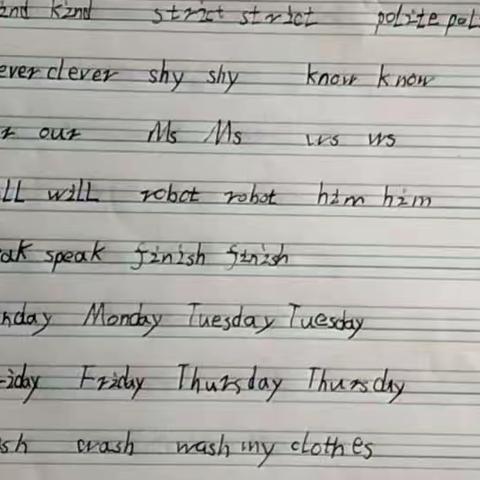 kind strict strict polite
clever shy shy know know
our Ms Ms us ws
will robot robot him him
speak finish finish
Monday Tuesday Tuesday
Friday Thursday Thursday
wash wash my clothes